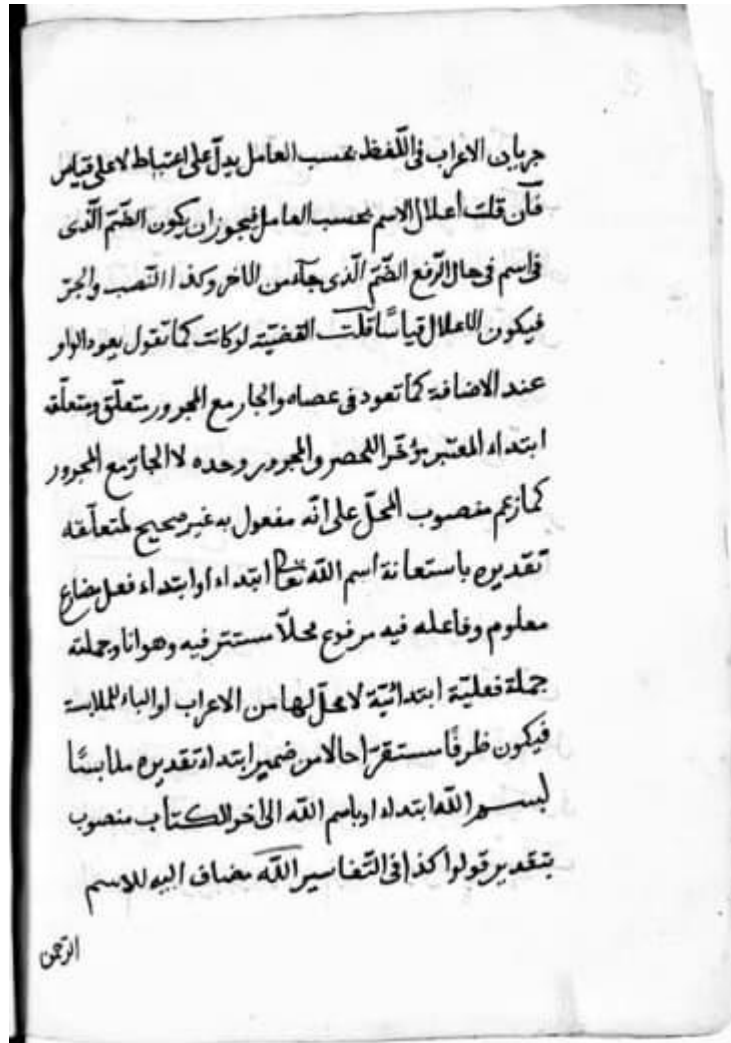 جريان الاعراب فى اللّفظ بحسب العامل يدلّ على اعتباط لا على قياس
فآن قلت أعلال الاسم بحسب العامل فيجوز ان يكون الضّمّ الّذى
فى اسم فى حال الرّفع الضّمّ الّذى جآء من الاخر وكذا النّصب والجرّ
فيكون الاعلال قياسًا قلت القضيّة لو كانت كما تقول يعود الواو
عند الاضافة كما تعود فى عصاه والجار مع المجرور متعلّق ومتعلّقه
ابتداء المعتبر مؤخّر اللحصر والمجرور وحده لا الجارّ مع المجرور
كما زعم منصوب المحلّ على انّه مفعول به غير صحيح لمتعلّقه
تقديره باستعانة اسم اللّه تعا ابتداء او ابتداء فعل مضارع
معلوم وفاعله فيه مرفوع محلاّ مستتر فيه وهو انا وجملته
جملة فعليّة ابتدائيّة لا محلّ لها من الاعراب او الباء للملابسة
فيكون ظرفًا مستقرّا حالا من ضمير ابتداء تقديره ملابسًا
لبسم اللّه ابتداء او باسم اللّه الى اخر الكتاب منصوب
بتقدير قولوا كذا فى التّفاسير اللّه مضاف اليه للاسم
الرّحمن